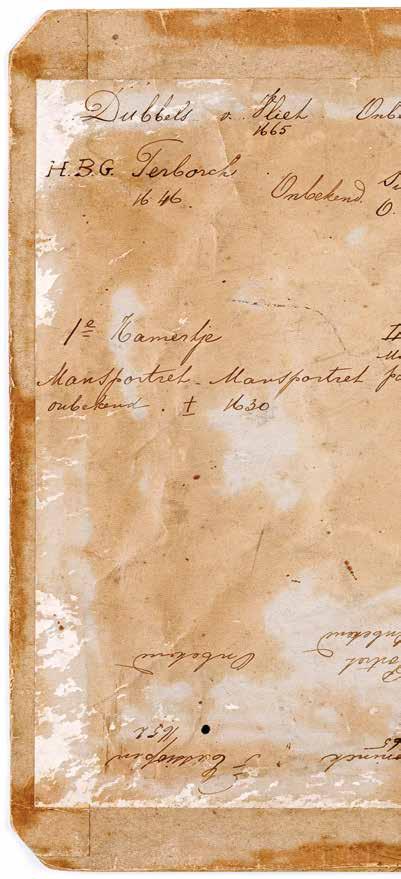 Dubbels v. Vliet Onb
1665
H.B.G. Terborch
1646. Onbekend
O.
1e Kamertje
Mansportret - Mansportret
onbekend . ± 1630
Onbekend
Portret
Onbekend
1652